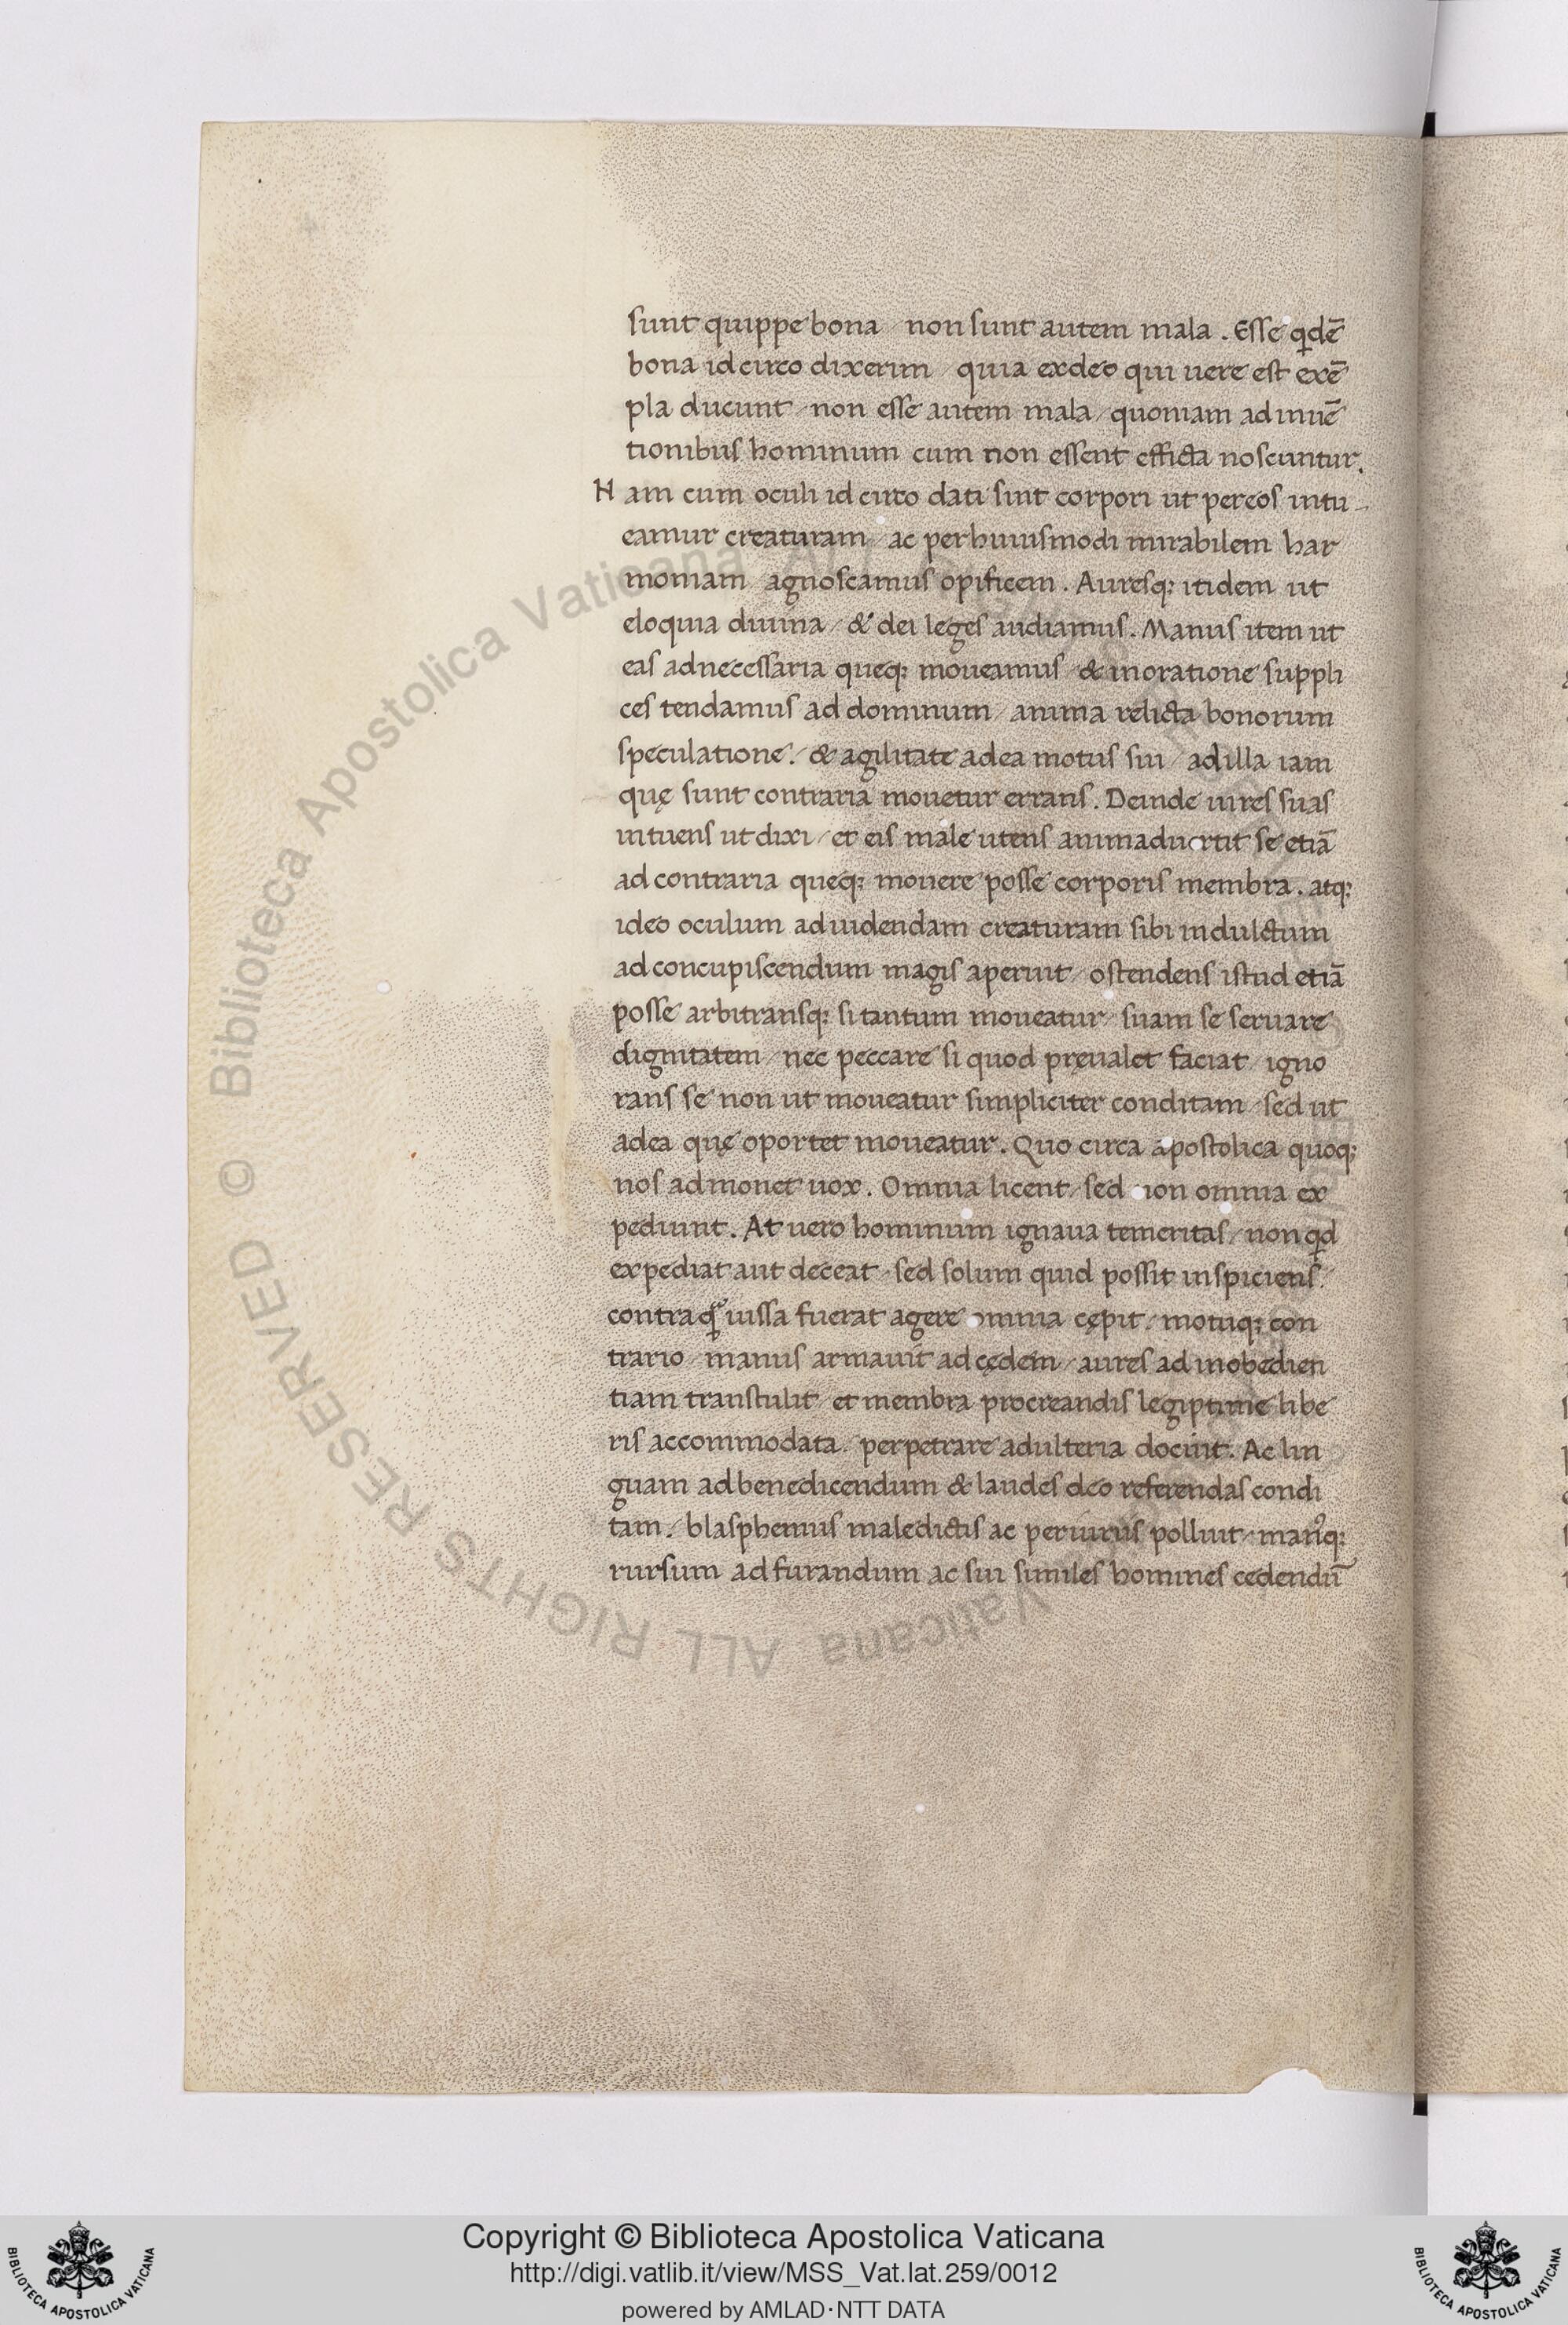 sunt quippe bona / non sunt autem mala. Esse qͥdē
bona idcirco dixerim / quia ex deo qui uere est exē
pla ducunt / non esse autem mala / quoniam adinuē
tionibus hominum cum non essent efficta noscuntur.
Nam cum oculi idcirco dati sint corpori ut per eos intu-
eamur creaturam / ac per huiusmodi mirabilem har
moniam agnoscamus opificem. Auresq; itidem ut
eloquia diuina / & dei leges audiamus. Manus item ut
eas ad necessaria queq; moueamus / & in oratione suppli
ces tendamus ad dominum / anima relicta bonorum
speculatione / & agilitate ad ea motus sui / ad illa iam
quę sunt contraria mouetur errans. Deinde uires suas
intuens ut dixi / et eis male utens animaduertit se etiā
ad contraria queq; mouere posse corporis membra. atq;
ideo oculum ad uidendam creaturam sibi indultum
ad concupiscendum magis aperuit / ostendens istud etiā
posse arbitransq; si tantum moueatur / suam se seruare
dignitatem / nec peccare si quod pręualet faciat / igno
rans se non ut moueatur simpliciter conditam / sed ut
ad ea quę oportet moueatur. Quo circa apostolica quoq;
nos admonet uox. Omnia licent / sed non omnia ex
pediunt. At uero hominum ignaua temeritas / non qͥd
expediat aut deceat / sed solum quid possit inspiciens /
contra qͣ iussa fuerat agere omnia cępit / motuq; con
trario / manus armauit ad cędem / aures ad inobedien
tiam transtulit / et membra procreandis legiptime libe
ris accommodata / perpetrare adulteria docuit. Ac lin
guam ad benedicendum & laudes deo referendas condi
tam / blasphemiis maledictis ac periuriis polluit / manꝰq;
rursum ad furandum ac sui similes homines cedendū
© Biblioteca Apostolica Vaticana
ALL RIGHTS RESERVED
Vaticana
Copyright © Biblioteca Apostolica Vaticana
http://digi.vatlib.it/view/MSS_Vat.lat.259/0012
powered by AMLAD·NTT DATA
BIBLIOTECA APOSTOLICA VATICANA
BIBLIOTECA APOSTOLICA VATICANA